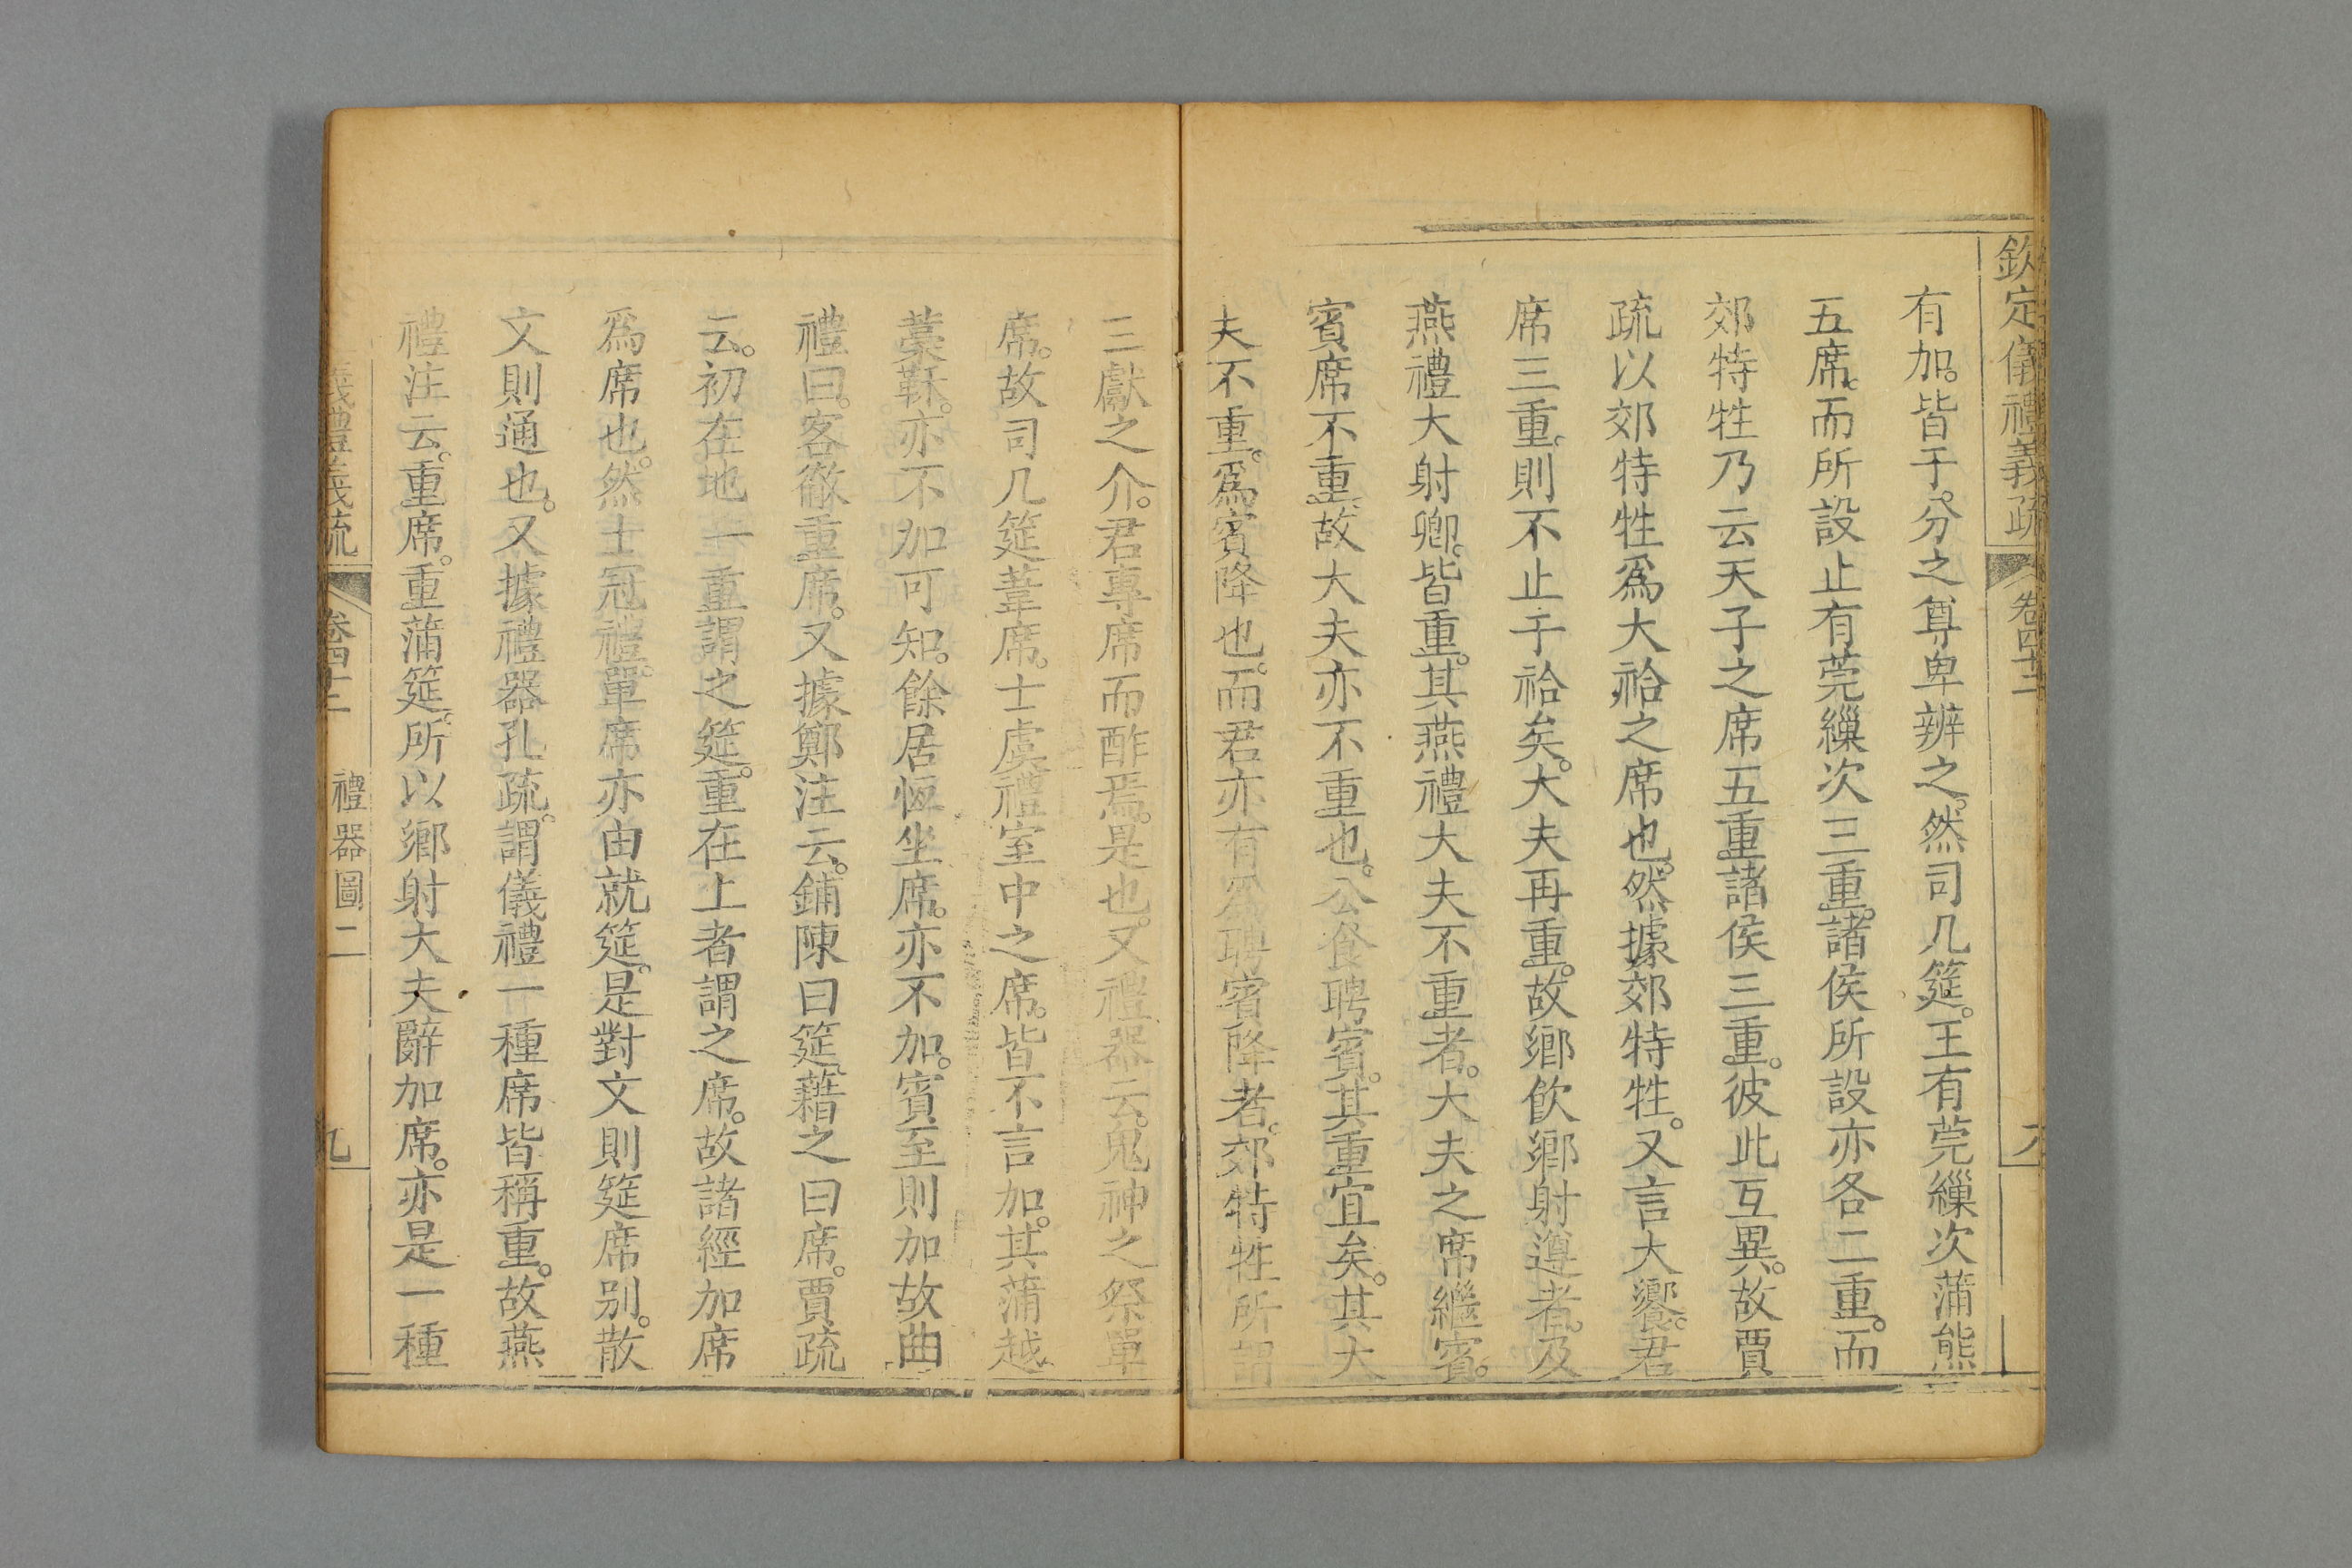 欽定儀禮義疏 卷四十二
有加。皆于。分之尊卑辨之。然司几筵。王有莞繅次蒲熊
五席。而所設止有莞繅次三重。諸侯所設亦各二重。而
郊特牲乃云天子之席五重諸侯三重。彼此互異。故賈
疏以郊特牲爲大祫之席也。然據郊特牲。又言大饗。君
席三重。則不止于祫矣。大夫再重。故鄉飮鄉射遵者。及
燕禮大射卿。皆重。其燕禮大夫不重者。大夫之席繼賓。
賓席不重。故大夫亦不重也。公食聘賓。其重宜矣。其大
夫不重。爲賓降也。而君亦有爲聘賓降者。郊特牲所謂
三獻之介。君專席而酢焉。是也。又禮器云。鬼神之祭單
席。故司几筵葦席。士虞禮室中之席。皆不言加。其蒲越
藁鞂。亦不加可知。餘居恆坐席。亦不加。賓至則加故曲
禮曰。客徹重席。又據鄭注云。鋪陳曰筵。藉之曰席。賈疏
云。初在地一重謂之筵。重在上者謂之席。故諸經加席
爲席也。然士冠禮。單席亦由就筵。是對文則筵席别。散
文則通也。又據禮器孔疏。謂儀禮一種席皆稱重。故燕
禮注云。重席。重蒲筵。所以鄉射大夫辭加席。亦是一種
儀禮義疏 卷四十二 禮器圖二 九